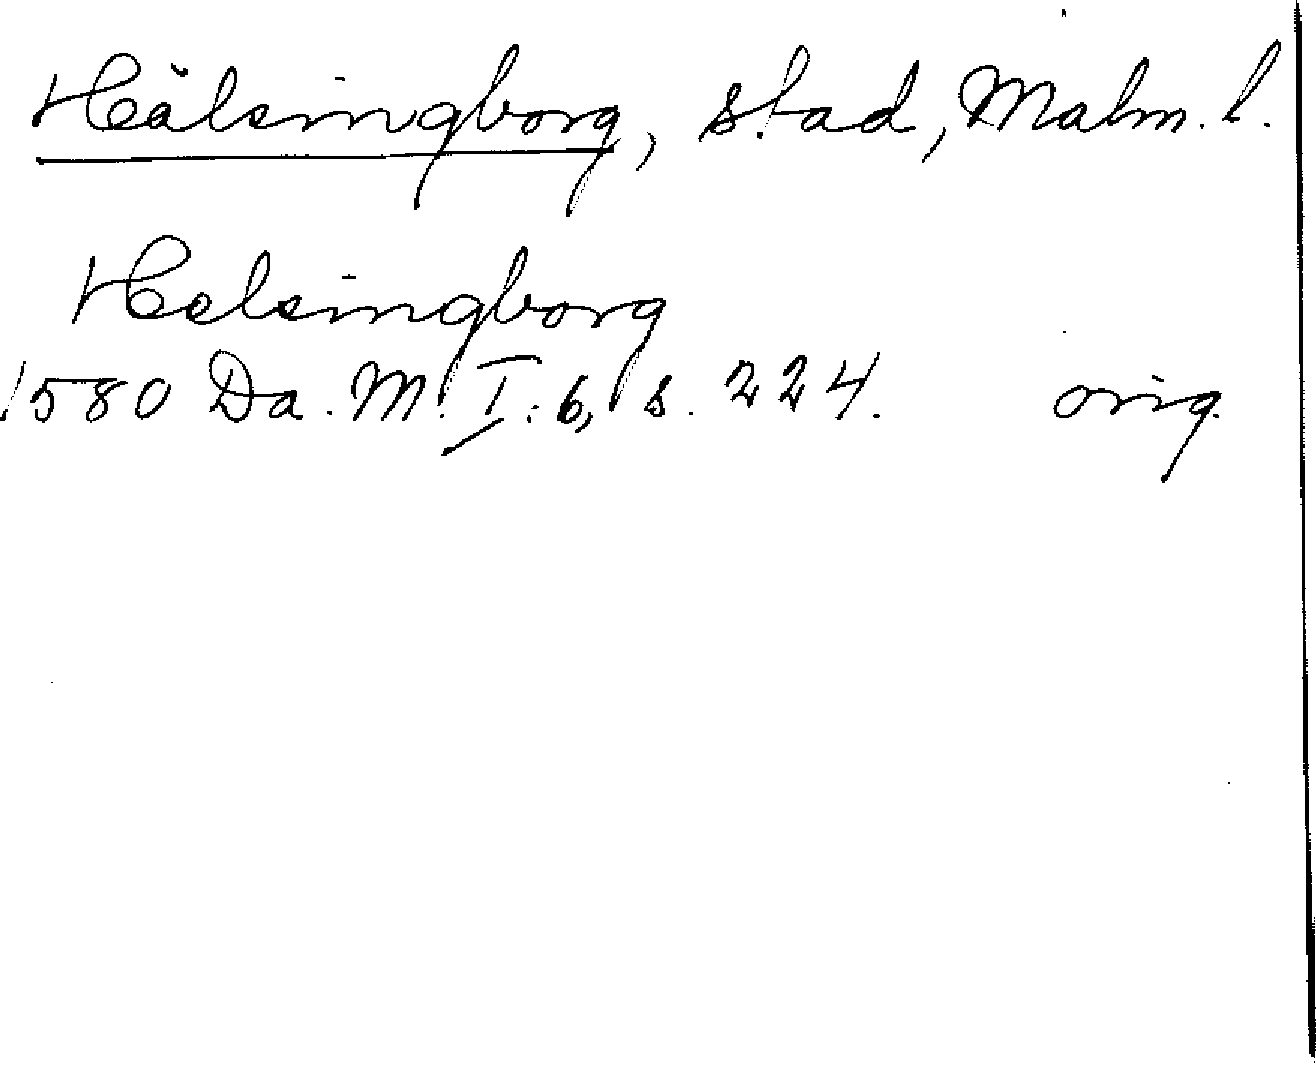 Hälsingborg, stad, Malm. l.
Helsingborg
1580 Da. M. I: 6, s. 224. orig.